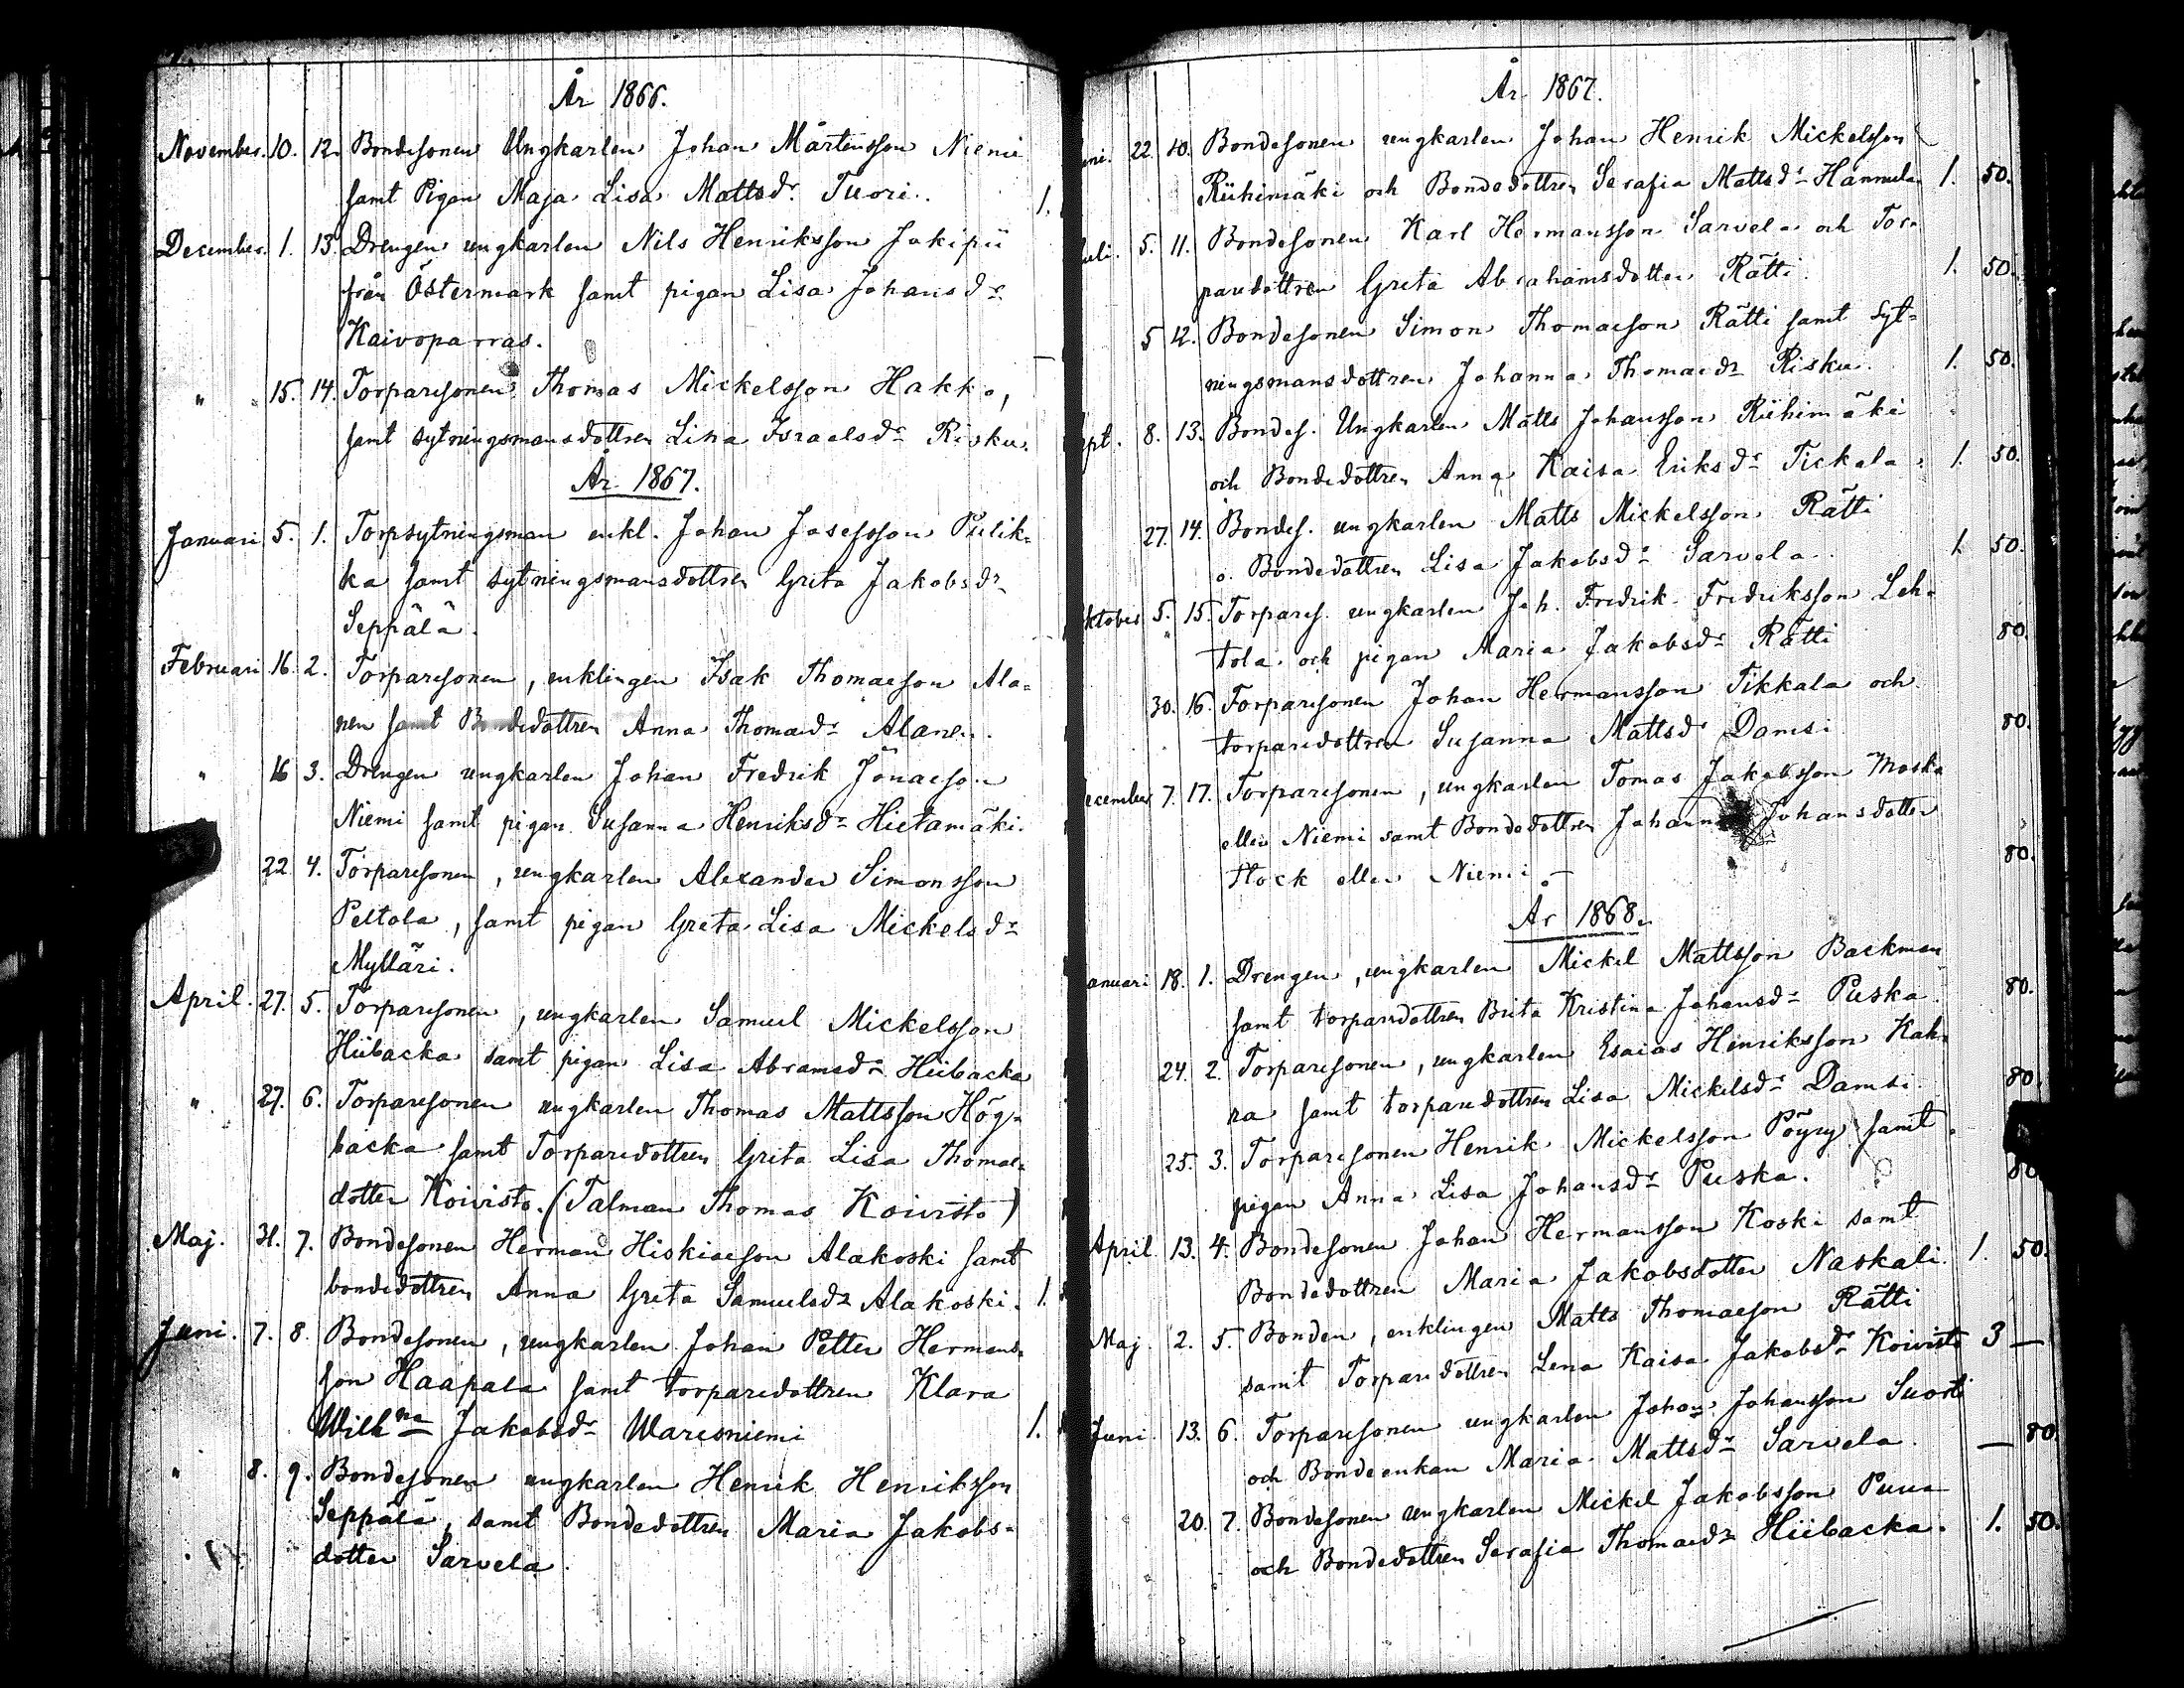 År 1866.
November. 10. 12. Bondesonen Ungkarlen Johan Mårtensson Niemi
samt Pigan Maja Lisa Mattsdr. Tuori. 1.
December. 1. 13. Drengen ungkarlen Nils Henriksson Jokipii
från Östermark samt pigan Lisa Johansdr
Kaivoparras. —
" 15. 14. Torparesonen Thomas Mickelsson Hakko,
samt sytningsmansdottren Lisa Israelsdr Risku.
År 1867.
Januari 5. 1. Torpsytningsman enkl. Johan Josefsson Pulik-
ka samt sytningsmansdottren Greta Jakobsdr
Seppälä.
Februari 16. 2. Torparesonen, enklingen Isak Thomaeson Ala-
nen samt Bondedottren Anna Thomaedr Alanen.
" 16 3. Drengen ungkarlen Johan Fredrik Jonaeson
Niemi samt pigan Susanna Henriksdr Hietamäki.
22. 4. Torparesonen, ungkarlen Alexander Simonsson
Peltola, samt pigan Greta Lisa Mickelsdr
Mylläri.
April. 27. 5. Torparesonen, ungkarlen Samuel Mickelsson
Hiibacka samt pigan Lisa Abramsdr Hiibacka
" 27. 6. Torparesonen ungkarlen Thomas Mattsson Hög-
backa samt Torparedottren Greta Lisa Thomae-
dotter Koivisto. (Talman Thomas Koivisto)
Maj. 31. 7. Bondesonen Herman Hiskiaeson Alakoski samt
bondedottren Anna Greta Samuelsdr Alakoski. 1.
Juni. 7. 8. Bondesonen, ungkarlen Johan Petter Hermans-
son Haapala samt torparedottren Klara
Wilhna Jakobsdr Waresniemi 1.
" 8. 9. Bondesonen ungkarlen Henrik Henriksson
Seppälä, samt Bondedottren Maria Jakobs-
dotter Sarvela.
År 1867.
uni. 22. 10. Bondesonen ungkarlen Johan Henrik Mickelsson
Riihimäki och Bondedottren Serafia Mattsdr Hannula 1. 50.
uli. 5. 11. Bondesonen Karl Hermansson Sarvela och Tor-
paredottren Greta Abrahamsdotter Rätti 1. 50.
5 12. Bondesonen Simon Thomaeson Rätti samt Syt-
ningsmansdottren Johanna Thomaedr Risku. 1. 50.
pt. 8. 13. Bondes. Ungkarlen Matts Johansson Riihimäki
och Bondedottren Anna Kaisa Eriksdr Tickala. 1. 50.
27. 14. Bondes. ungkarlen Matts Mickelsson Rätti
o. Bondedottren Lisa Jakobsdr Sarvela. 1. 50.
ktober 5. 15. Torpares. ungkarlen Joh. Fredrik Fredriksson Leh-
tola och pigan Maria Jakobsdr Rätti 80.
30. 16. Torparesonen Johan Hermansson Tikkala och
torparedottren Susanna Mattsdr Damsi 80.
ecember 7. 17. Torparesonen, ungkarlen Tomas Jakobsson Moska
eller Niemi samt Bondedottren Johanna Johansdotter
Flock eller Niemi — 80.
År 1868.
anuari 18. 1. Drengen, ungkarlen Mickel Mattsson Backman
samt torparedottren Brita Kristina Johansdr Puska. 80.
24. 2. Torparesonen, ungkarlen Esaias Henriksson Kah-
ra samt torparedottren Lisa Mickelsdr Damsi. 80
25. 3. Torparesonen Henrik Mickelsson Pöyry samt
pigan Anna Lisa Johansdr Puska. 80
April 13. 4. Bondesonen Johan Hermansson Koski samt
Bondedottren Maria Jakobsdotter Naskali. 1. 50.
Maj. 2. 5. Bonden, enklingen Matts Thomaeson Rätti
samt Torparedottren Lena Kaisa Jakobsdr Koivisto 3 —
Juni. 13. 6. Torparesonen ungkarlen Johan Johansson Suorti
och Bondeenkan Maria Mattsdr Sarvela. — 80.
20. 7. Bondesonen ungkarlen Mickel Jakobsson Puua
och Bondedottren Serafia Thomaedr Hiibacka. 1. 50.